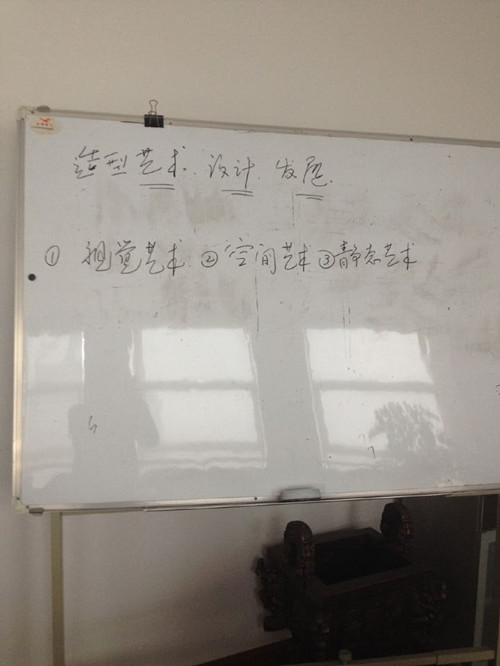 造型艺术 设计 发展
① 视觉艺术 ② 空间艺术 ③ 静态艺术